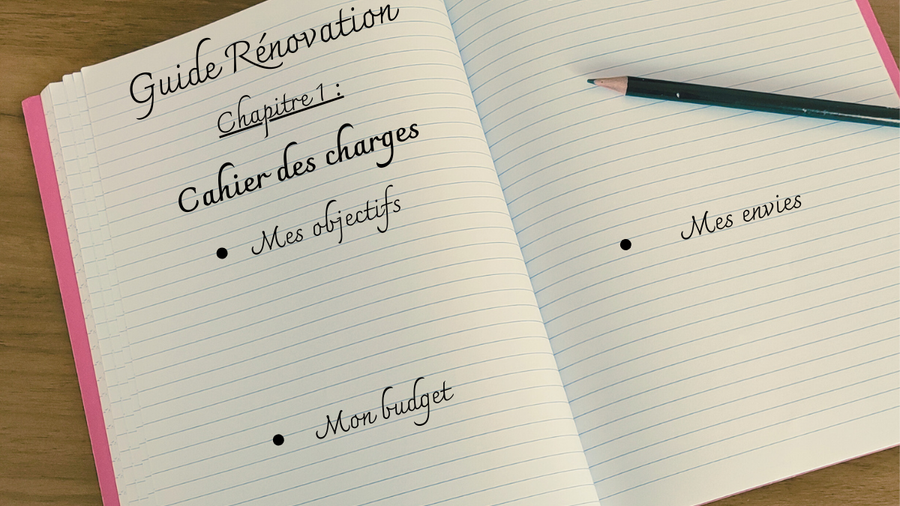 Guide Rénovation
Chapitre 1 :
Cahier des charges
• Mes objectifs
• Mon budget
• Mes envies